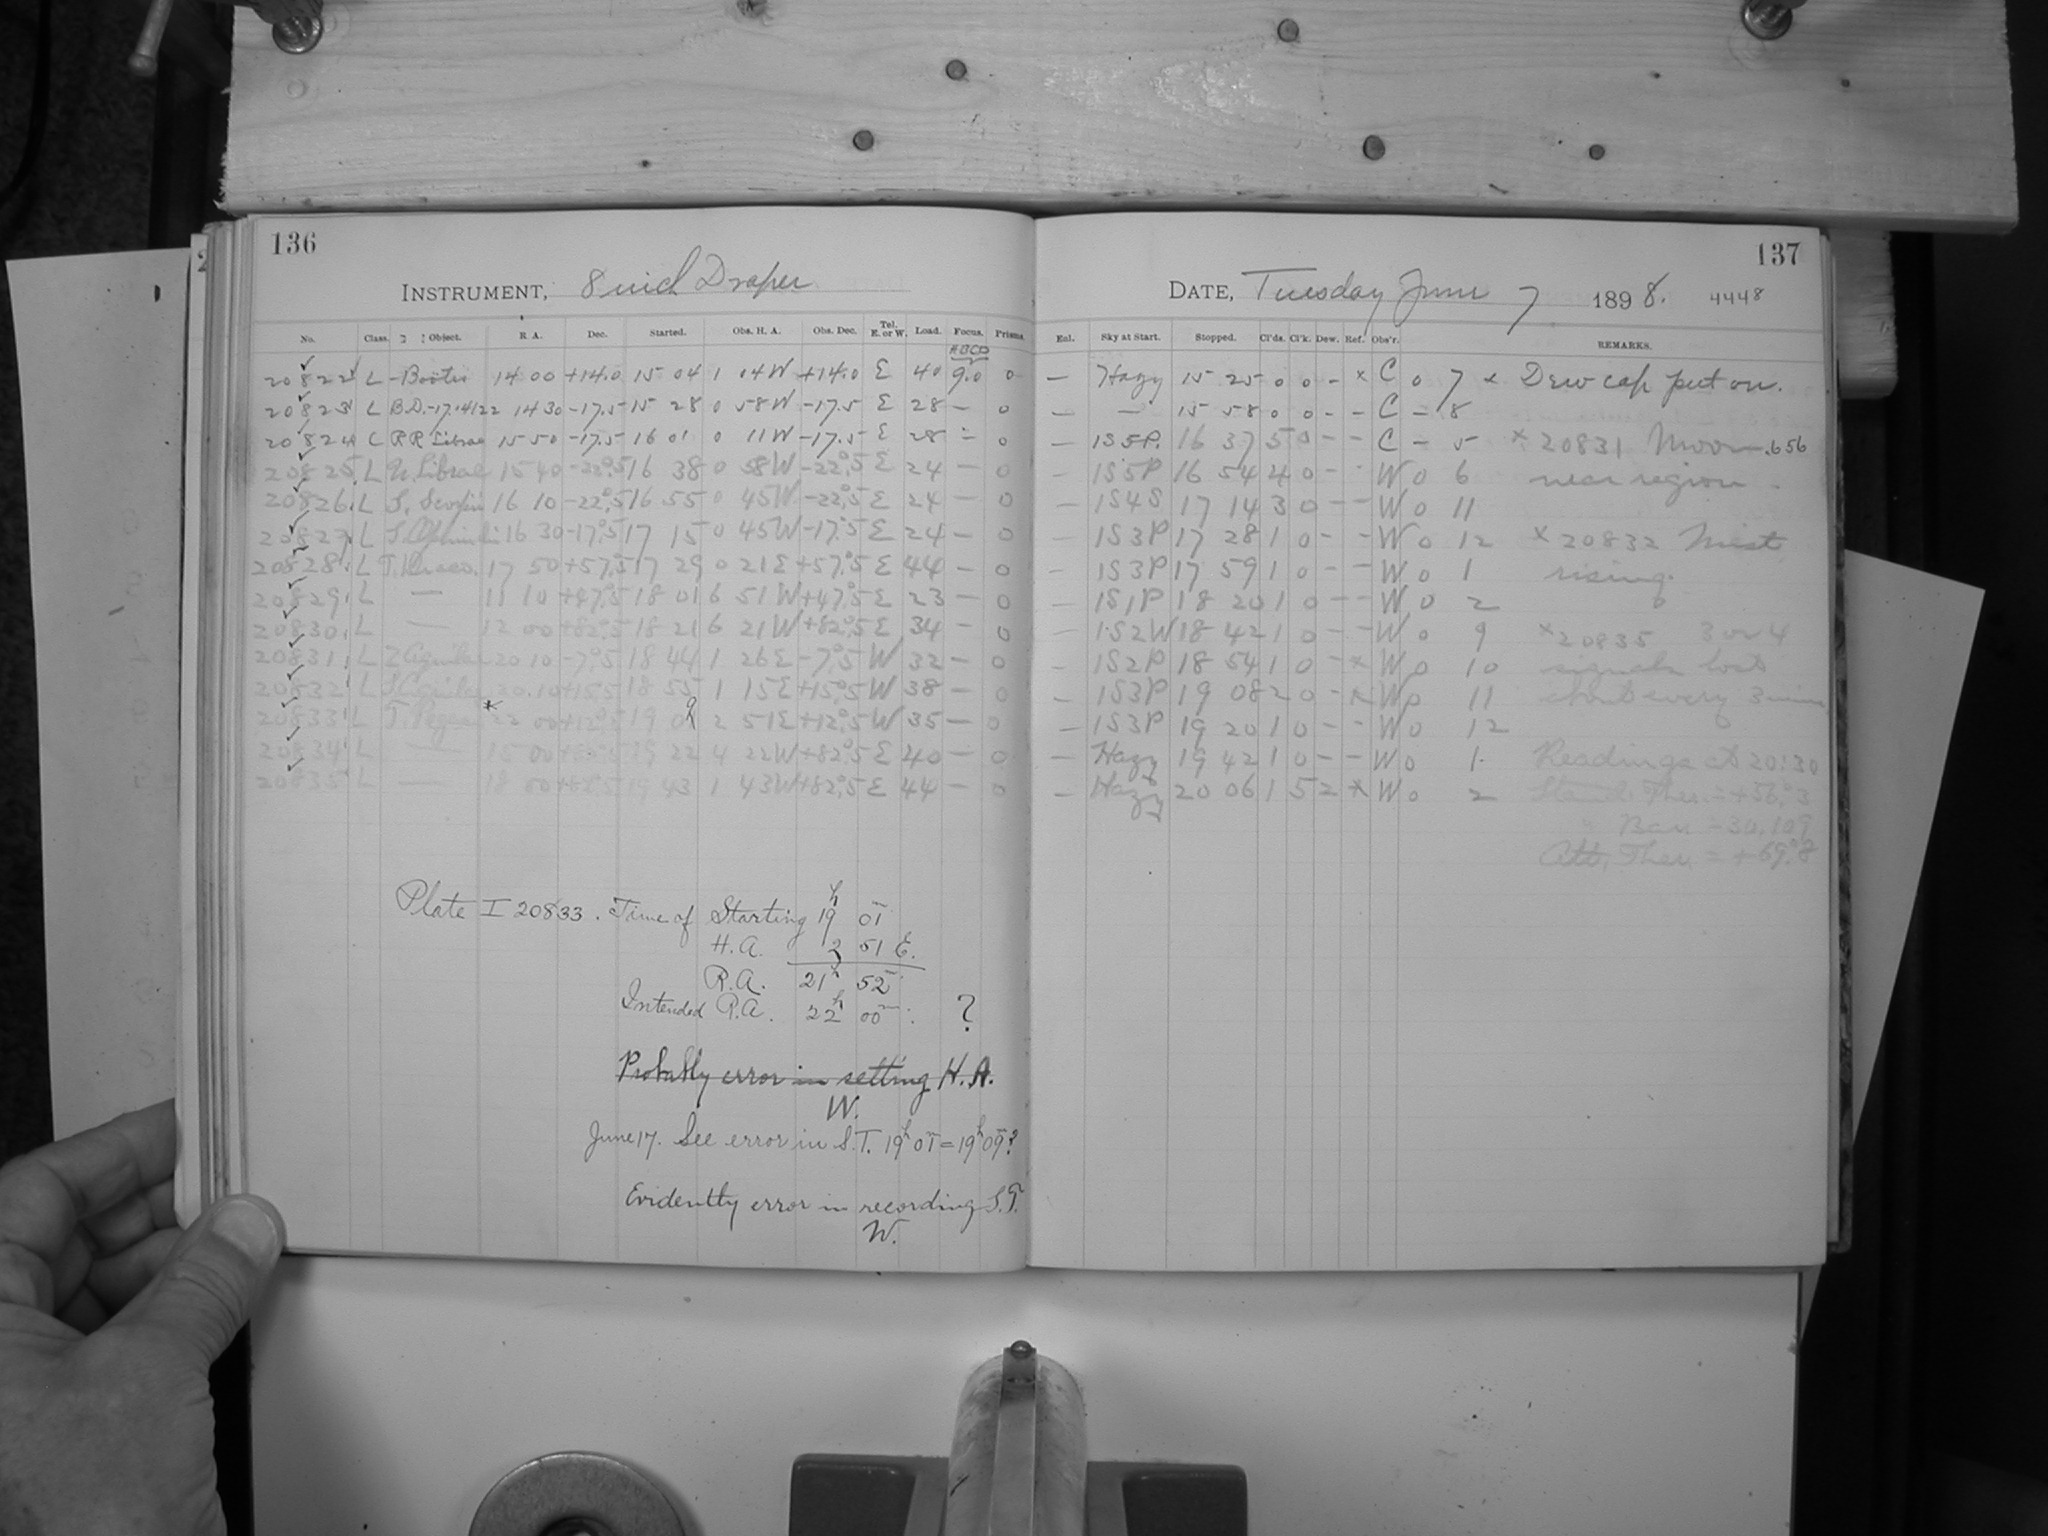 136
INSTRUMENT, 8 inch Draper
No. Class. Object. R. A. Dec. Started. Obs. H. A. Obs. Dec. Tel. E. or W. Load. Focus. Prisms.
ABCD
20822 L - Bootis 14 00 +14.0 15 04 1 04W +14.0 E 40 9.0 0
20823 L B.D.-17.4122 14 30 -17.5 15 28 0 58W -17.5 E 28 - 0
20824 C RR Librae 15 50 -17.5 16 01 0 11W -17.5 E 28 - 0
20825 L U. Librae 15 40 -22°.5 16 38 0 58W -22°.5 E 24 - 0
20826 L S. Scorpii 16 10 -22°.5 16 55 0 45W -22°.5 E 24 - 0
20827 L 16 30 -17°.5 17 15 0 45W -17°.5 E 24 - 0
20828 L T. Draco. 17 50 +57°.5 17 29 0 21E +57°.5 E 44 - 0
20829 L — 11 10 +47°.5 18 01 6 51W +47°.5 E 23 - 0
20830 L — 12 00 +82°.5 18 21 6 21W +82°.5 E 34 - 0
20831 L Z Aquilae 20 10 -7°.5 18 44 1 26E -7°.5 W 32 - 0
20832 L S. Aquilae 20 10 +15°.5 18 55 1 15E +15°.5 W 38 - 0
20833 L T. Pegasi * 22 00 +12°.5 19 09 2 51E +12°.5 W 35 - 0
20834 L — 15 00 +82°.5 19 22 4 22W +82°.5 E 40 - 0
20835 L — 18 00 +82°.5 19 43 1 43W +82°.5 E 44 - 0
Plate I 20833. Time of Starting 19h 01m
H.A. 2 51 E.
R.A. 21h 52m
Intended R.A. 22h 00m. ?
Probably error in setting H.A.
W.
June 17. See error in S.T. 19h 01m = 19h 09m?
Evidently error in recording S.T.
W.
137
DATE, Tuesday June 7 1898. 4448
Enl. Sky at Start. Stopped. Cl'ds. Cl'k. Dew. Ref. Obs'r. REMARKS.
- Hazy 15 25 0 0 - x C 0 7 x Dew cap put on.
- - 15 58 0 0 - - C - 8
- 1S5P. 16 37 5 0 - - C - 5 x 20831 Moon .656
- 1S5P 16 54 4 0 - - W 0 6 near region
- 1S4S 17 14 3 0 - - W 0 11
- 1S3P 17 28 1 0 - - W 0 12 x 20832 Mist
- 1S3P 17 59 1 0 - - W 0 1 rising.
- 1S1P 18 20 1 0 - - W 0 2
- 1S2W 18 42 1 0 - - W 0 9 x 20835 3 or 4
- 1S2P 18 54 1 0 - x W 0 10 signals lost
- 1S3P 19 08 2 0 - x W 0 11 about every 3 min
- 1S3P 19 20 1 0 - - W 0 12
- Hazy 19 42 1 0 - - W 0 1 Readings at 20:30
- Hazy 20 06 1 5 2 x W 0 2 Stand. Ther. = +56°.3
Bar = 30.109
Att. Ther. = +69°.8